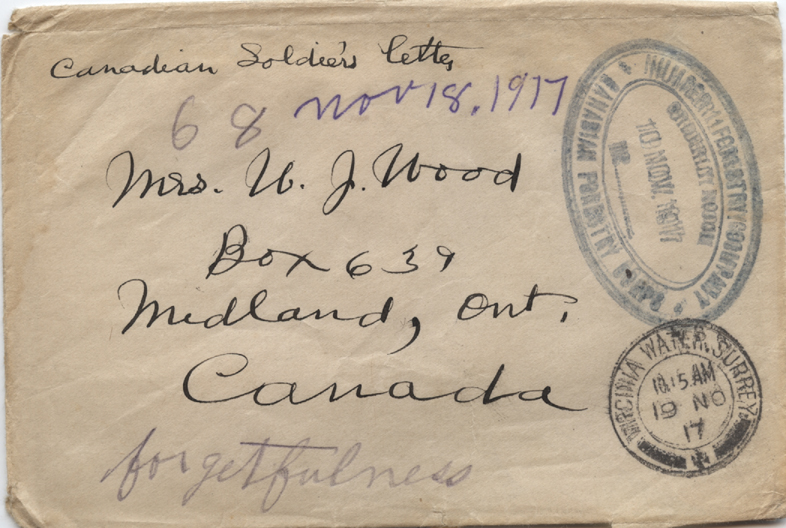 Canadian Soldier's letter
68 Nov 18. 1917
Mrs. W. J. Wood
Box 639
Medland, Ont.
Canada
forgetfulness
NUMBER 1 FORESTRY COMPANY
CANADIAN FORESTRY CORPS
10 NOV. 1917
VIRGINIA WATER, SURREY
10.15 AM
19 NO
17